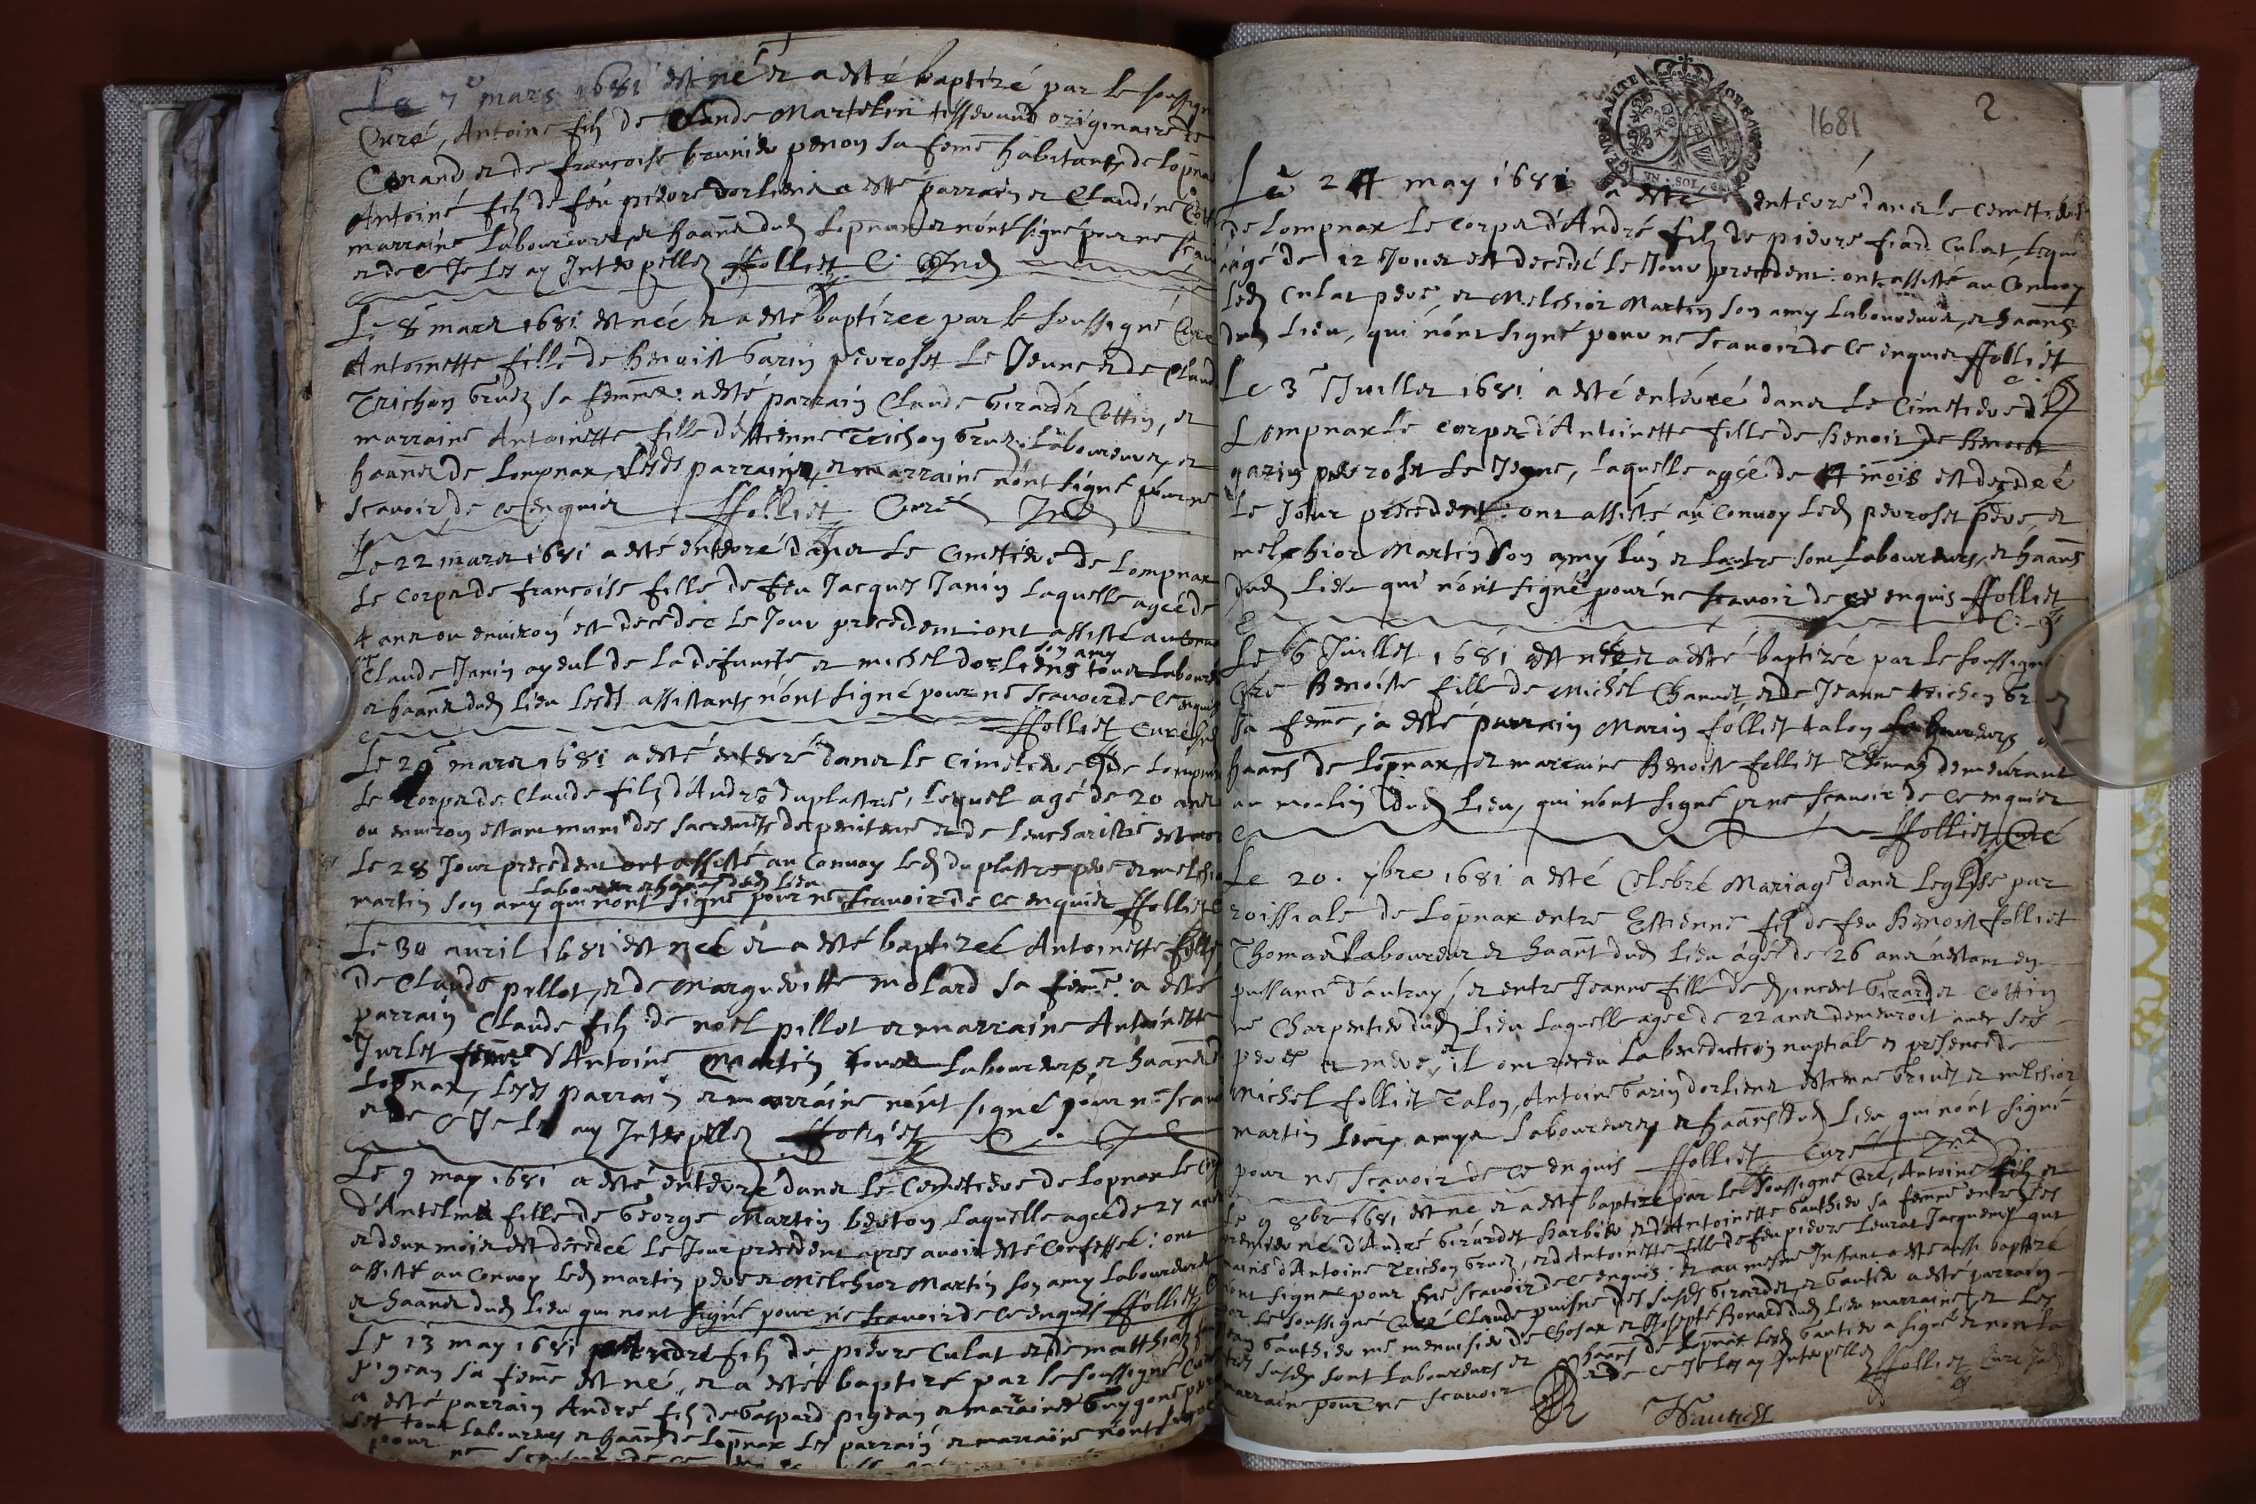 Le 7e mars 1681 est né et a esté baptizé par le soussigné
Curé, Antoine filz de Claude Martelin tisserand originaire de
et de françoise brunier penon sa feme habitants de Lopnax
Antoine filz de feu pierre dorliens a esté parrain et Claudine
marraine Laboureurs et haans dud Lopnax et n'ont signé pour ne scavoir
et de ce Je les ay Interpellez ffolliet C.
Le 8e mars 1681 est née et a esté baptizée par le soussigné Curé
Antoinette fille de Benoist Garin pevrosset Le Jeune et de Claud
Trichon Gruez sa femme: a esté parrain Claude Girardet Cottin, et
marraine Antoinette fille d'Estienne Trichon Gruez Laboureurs, et
haans de Lompnax, Lesds parrain, et marraine n'ont signé pour ne
scavoir de ce enquis ffolliet Curé
Le 22 mars 1681 a esté enterré dans Le Cimetiere de Lompnax
Le Corps de françoise fille de feu Jacques Janin Laquelle agée de
4 ans ou environ est decedée Le Jour precedent: ont assisté au convoy
Claude Janin ayeul de La defuncte et michel dorliens son amy tous Laboureurs
et haans dud Lieu Lesds assistants n'ont signé pour ne scavoir de ce enquis
ffolliet Curé
Le 29e mars 1681 a esté enterré dans Le Cimetiere de Lompnax
Le Corps de Claude filz d'André duplastre, Lequel agé de 20 ans
ou environ estant muni des sacremts de penitence et de Leucharistie est mort
Le 28 Jour precedent ont assisté au Convoy Led duplastre pere et melchior
Laboureurs et haans dud Lieu
martin son amy qui n'ont signé pour ne scavoir de ce enquis ffolliet C
Le 30 avril 1681 est née et a esté baptizeé Antoinette fille
de Claude pillot, et de Marguerite molard sa feme: a esté
parrain Claude filz de noel pillot et marraine Antoinette
Jurlet feme d'Antoine Martin tous Laboureurs, et haans de
Lopnax, Lesds parrain et marraine n'ont signé pour ne scavoir
et de ce Je les ay Interpellez ffolliet C.
Le 9 may 1681 a esté enterré dans Le Cemetiere de Lopnax Le Corps
d'Antelme fille de George Martin berton Laquelle agée de 27 ans
et deux mois est decedeé Le Jour precedent apres avoir esté Confesseé: ont
assisté au Convoy Led martin pere et Melchior Martin son amy Laboureurs
et haans dud Lieu qui n'ont signé pour ne scavoir de ce enquis ffolliet C
Le 13 may 1681 André filz de pierre Culat et de matthiaz
pigean sa feme est né, et a esté baptizé par le soussigné Curé
a esté parrain André filz de Gaspard pigean et marraine Guygone
tous Laboureurs et haans de Lopnax Les parrain et marraine n'ont signé
pour ne scavoir
1681
2
Le 24 may 1681 a esté enterré dans le Cemetiere
de Lompnax Le Corps d'André filz de pierre fiard Culat, Lequel
aagé de 12 Jours est decedé Le Jour precedent: ont assisté au Convoy
Led Culat pere, et Melchior Martin son amy Laboureurs, et haans
dud Lieu, qui n'ont signé pour ne scavoir de ce enquis ffolliet
Le 3e Juillet 1681 a esté enterré dans Le Cimetiere de
Lompnax Le Corps d'Antoinette fille de Benoit de Benoit
garin pevrosset Le Jeune, laquelle agée de 4 mois est decedeé
Le Jour precedent: ont assisté au Convoy Led pevrosset pere, et
melchior Martin son amy L'un et L'autre sont Laboureurs, et haans
dud Lieu qui n'ont signé pour ne scavoir de ce enquis ffolliet
C.
Le 6 Juillet 1681 est née et a esté baptizée par le soussigné
Curé Benoiste fille de Michel Charvet, et de Jeanne trichon Gruez
sa feme; a esté parrain Marin folliet talon Laboureurs et
haans de Lopnax, et marraine Benoiste folliet Thomas demeurant
au moulin dud Lieu, qui n'ont signé pr ne scavoir de ce enquis
ffolliet Curé
Le 20. 7bre 1681 a esté Celebré Mariage dans Leglise par
roissiale de Lopnax entre Estienne filz de feu Benoist folliet
Thomas Laboureur et haant dud Lieu agé de 26 ans n'estant en
puissance d'autruy, et entre Jeanne fille de Vincent Girardet Cottin
me Charpentier dud Lieu Laquelle agée de 22 ans demeuroit avec ses
pere et mere, et il ont receu La benediction nuptiale en presence de
Michel folliet Talon, Antoine Garin dorliens estienne Gruez et melchior
martin Leurs amys Laboureurs, et haans dud Lieu qui n'ont signé
pour ne scavoir de ce enquis ffolliet Curé
Le 9 8bre 1681 est né et a esté baptizé par le soussigné Curé, Antoine filz et
premier né d'André Girardet harbier et d'Antoinette Gauthier sa feme entre les
mains d'Antoine Trichon Gruez, et d'Antoinette fille de feu pierre Leurat Jacquemet qui
n'ont signé pour ne scavoir de ce enquis: et au mesme Instant a esté aussi baptizé
par Le soussigné Curé Claude puisné des susds Girardet, et Gautier a esté parrain
Jean Gauthier me menuisier de Chosax et Josepte Bonard dud Lieu marraine, et Les
susds sont Laboureurs et haans de Lopnax Led Gautier a signé et non La
marraine pour ne scavoir et de ce Je Les ay Interpellez ffolliet Curé